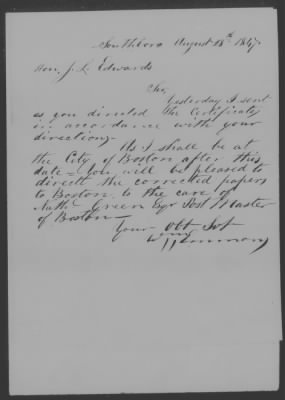 Southboro August 18th 1847.
Hon. J. L. Edwards
Sir,
Yesterday I sent
as you directed the Certificate
in accordance with your
directions.
As I shall be at
the City of Boston after this
date - You will be pleased to
direct the corrected papers
to Boston to the care of
Nath'l Green Esqr Post Master
of Boston -
Your Obt Svt